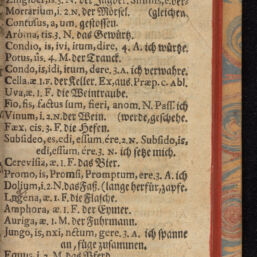 Mortarium, i. 2. N. der Mörsel. (gleichen.
Contusus, a, um, gestossen.
Aroma, tis. 3. N. das Gewürtz.
Condio, is, ivi, itum, dire, 4. A. ich würtze.
Potus, ûs, 4. M. der Tranck.
Condo, is, idi, itum, dere, 3. A. ich verwahre.
Cella, æ. 1. F. der Keller. Ex, aus. Præp. c. Abl.
Uva, æ. 1. F. die Weintraube.
Fio, fis, factus sum, fieri, anom. N. Pass. ich
Vinum, i. 2. N. der Wein. (werde, geschehe.
Fæx, cis. 3. F. die Hefen.
Subsideo, es, edi, essum, ére, 2. N. Subsido, is,
edi, essum, ére. 3. N. ich setze mich.
Cerevisia, æ. 1. F. das Bier.
Promo, is, Promsi, Promptum, ere. 3. A. ich
Dolium, i. 2. N. das Faß. (lange herfür, zapfe.
Lagena, æ. 1. F. die Flasche.
Amphora, æ. 1. F. der Eymer.
Auriga, æ. 1. M. der Fuhrmann.
Jungo, is, nxi, nctum, gere. 3. A. ich spanne
an, füge zusammen.
Equus, i. 2. M. das Pferd.